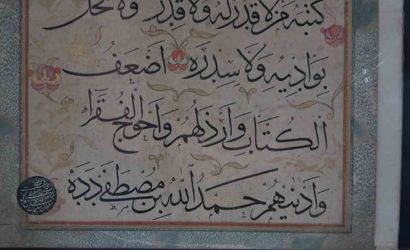 كتبه من لا قدر له ولا قدر ولا تحل
بواديه ولا سدره اضعف
الكتاب وارذلهم واحوج الفقراء
وادنيهم حمد الله بن مصطفى دده